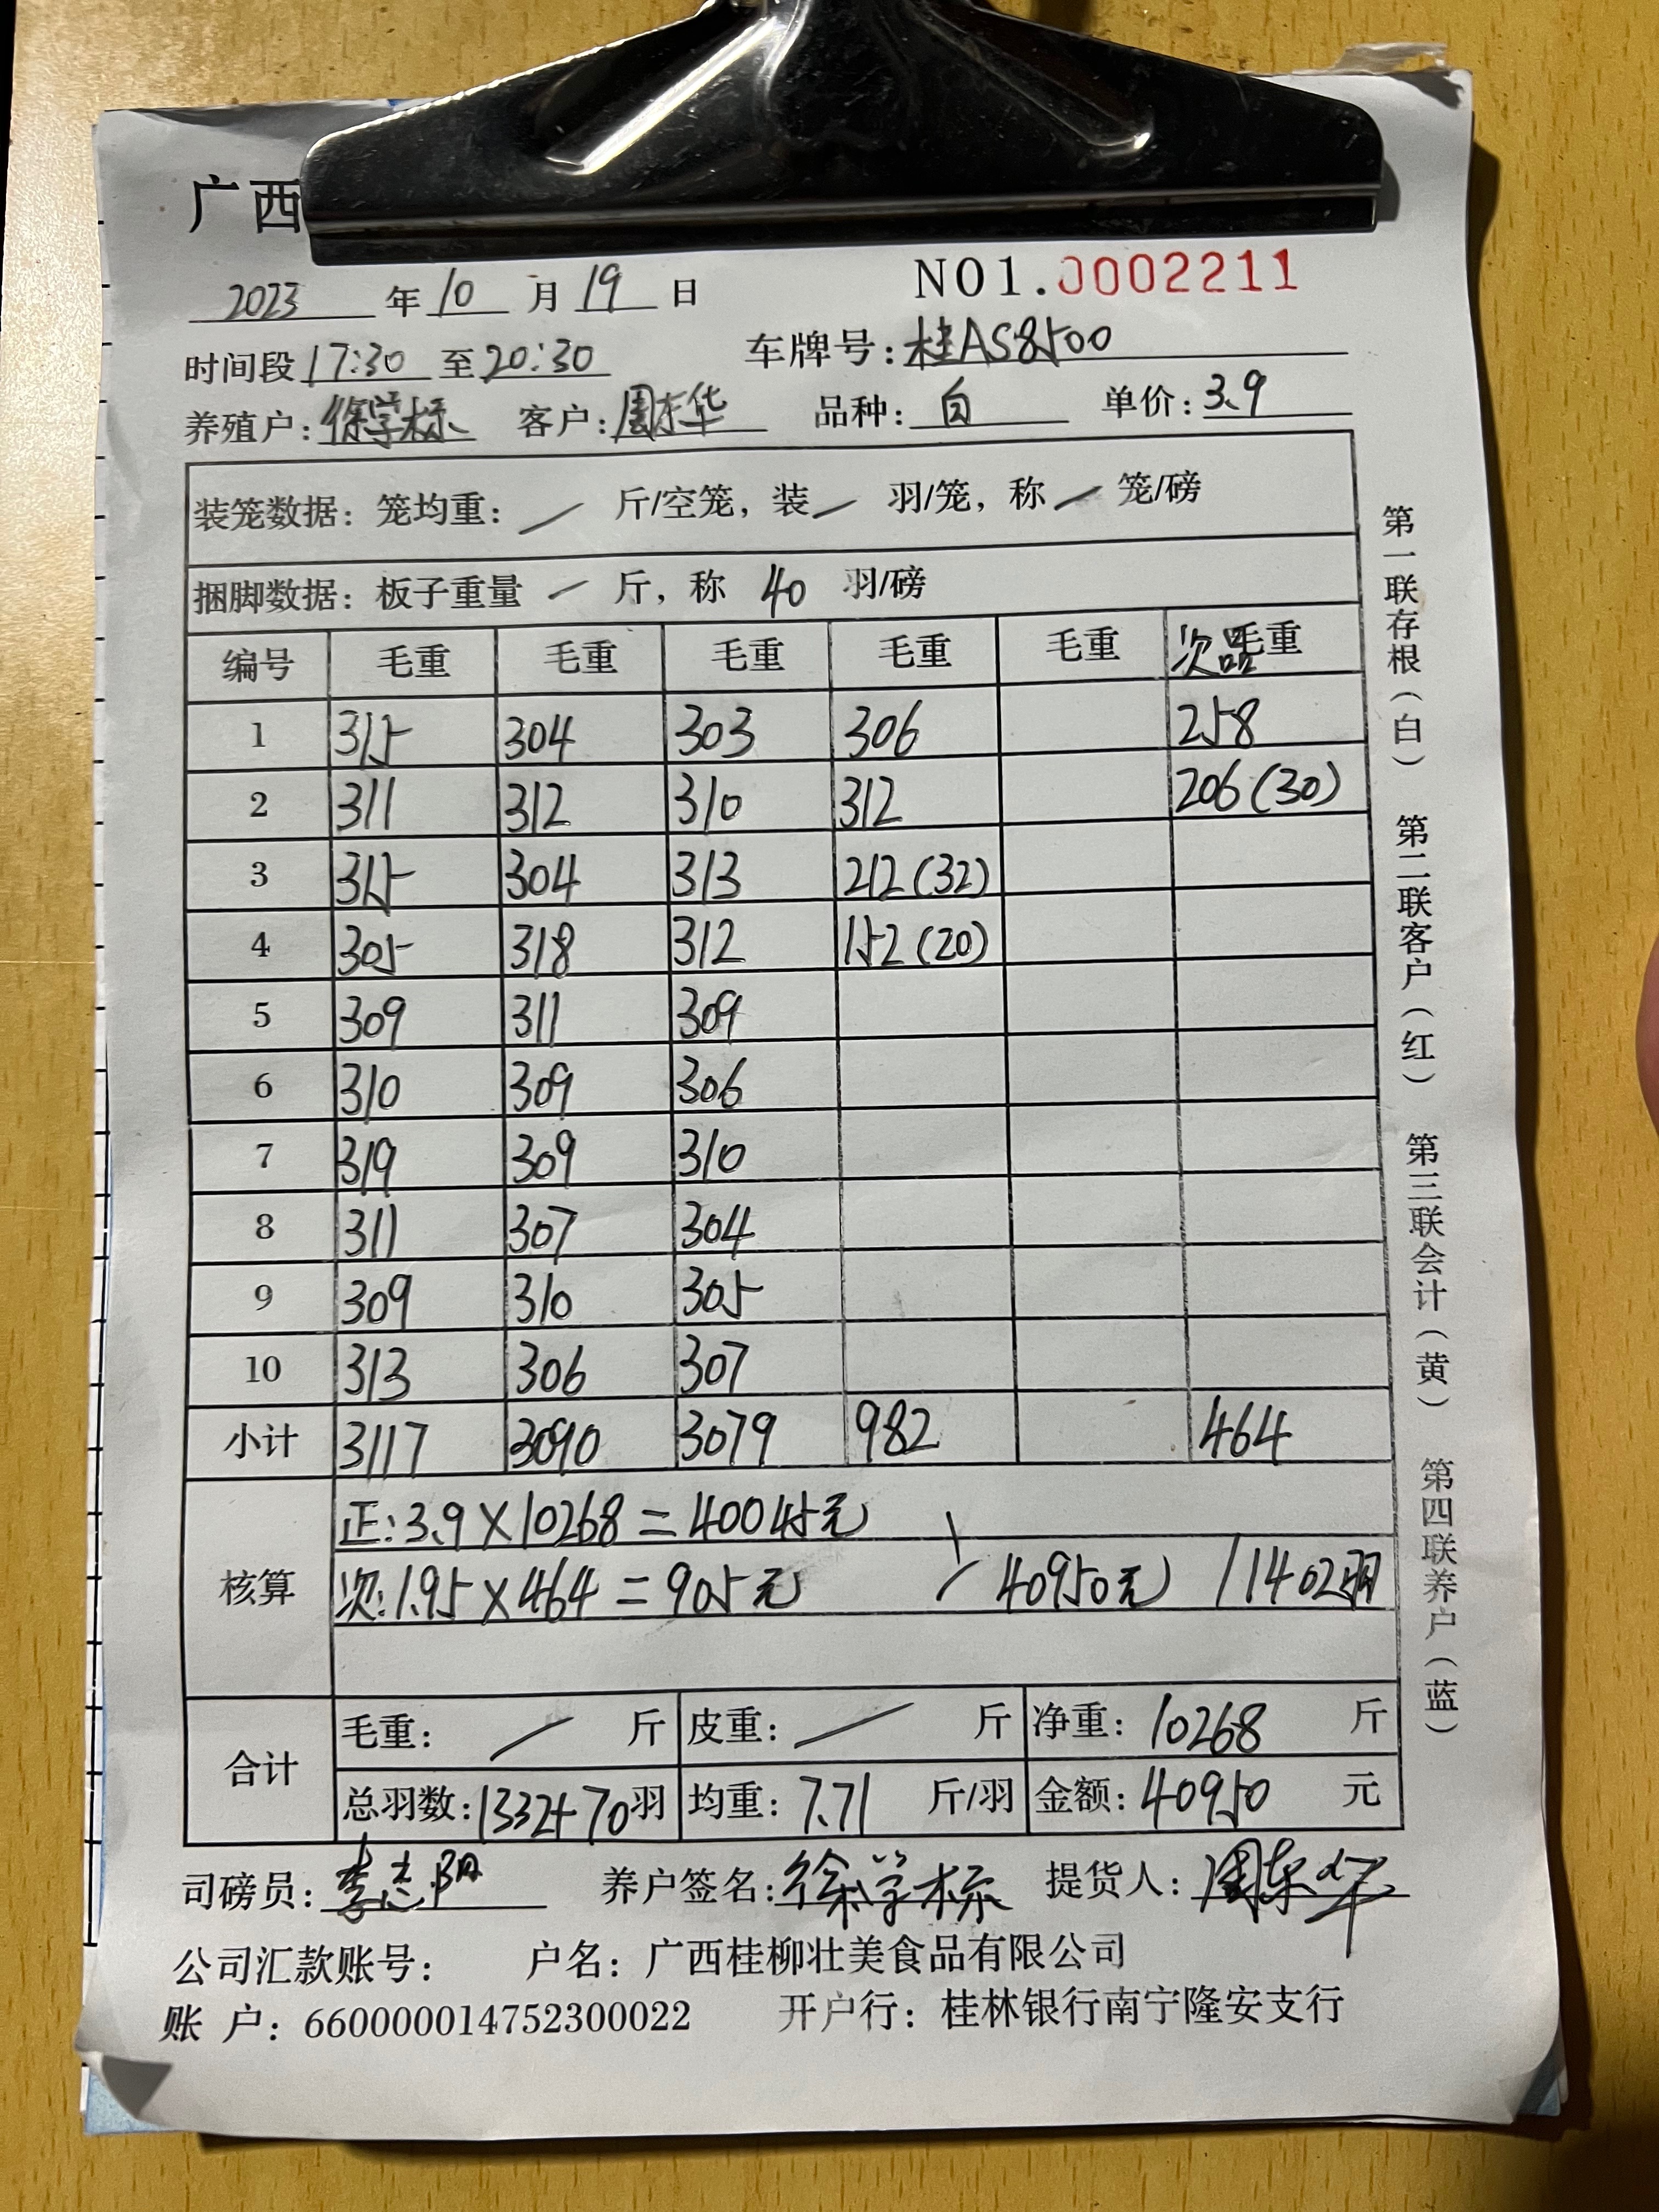 广西
NO1.0002211
2023 年 10 月 19 日
时间段 17:30 至 20:30 车牌号: 桂AS8500
养殖户: 徐学标 客户: 周东华 品种: 白 单价: 3.9
装笼数据: 笼均重: / 斤/空笼, 装 / 羽/笼, 称 / 笼/磅
捆脚数据: 板子重量 / 斤, 称 40 羽/磅
编号 毛重 毛重 毛重 毛重 毛重 次品毛重
1 315 304 303 306 258
2 311 312 310 312 206(30)
3 315 304 313 212(32)
4 305 318 312 152(20)
5 309 311 309
6 310 309 306
7 319 309 310
8 311 307 304
9 309 310 305
10 313 306 307
小计 3117 3090 3079 982 464
核算
正: 3.9×10268=40045元
次: 1.95×464=905元 40950元 /1402羽
合计
毛重: / 斤 皮重: / 斤 净重: 10268 斤
总羽数: 1332+70羽 均重: 7.71 斤/羽 金额: 40950 元
司磅员: 李志阳 养户签名: 徐学标 提货人: 周东华
公司汇款账号: 户名: 广西桂柳壮美食品有限公司
账 户: 660000014752300022 开户行: 桂林银行南宁隆安支行
第一联存根(白) 第二联客户(红) 第三联会计(黄) 第四联养户(蓝)